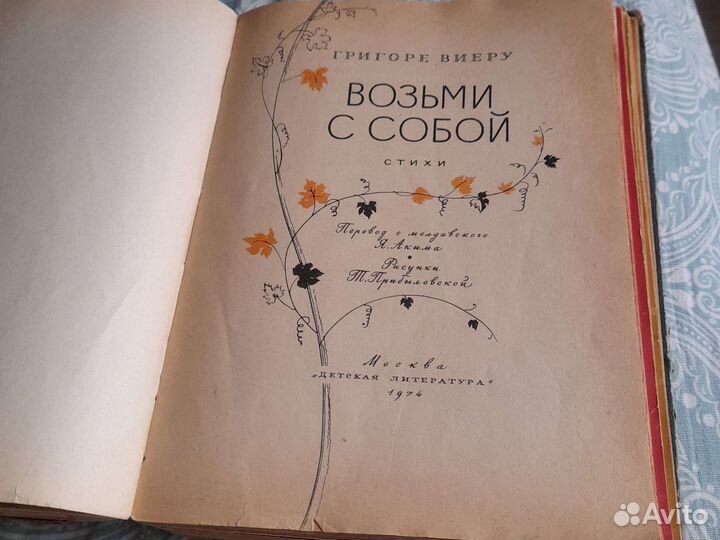 ГРИГОРЕ ВИЕРУ
ВОЗЬМИ
С СОБОЙ
СТИХИ
Перевод с молдавского
Я. Акима
Рисунки
Т. Прибыловской
Москва
„ДЕТСКАЯ ЛИТЕРАТУРА"
1974
Avito